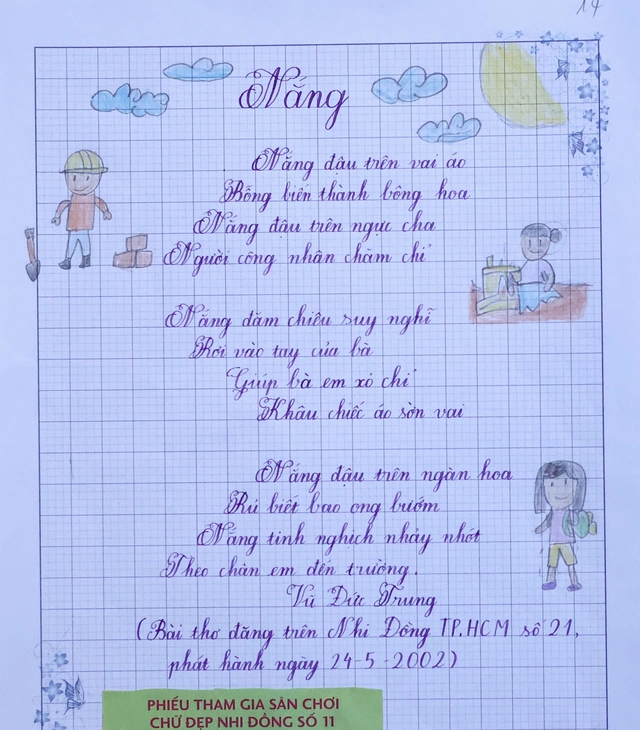 14
Nắng
Nắng đậu trên vai áo
Bỗng biến thành bông hoa
Nắng đậu trên ngực cha
Người công nhân chăm chỉ
Nắng đăm chiêu suy nghĩ
Rơi vào tay của bà
Giúp bà em xỏ chỉ
Khâu chiếc áo sờn vai
Nắng đậu trên ngàn hoa
Rủ biết bao ong bướm
Nắng tinh nghịch nhảy nhót
Theo chân em đến trường.
Vũ Đức Trung
(Bài thơ đăng trên Nhi Đồng TP.HCM số 21,
phát hành ngày 24-5-2002)
PHIẾU THAM GIA SÂN CHƠI
CHỮ ĐẸP NHI ĐỒNG SỐ 11